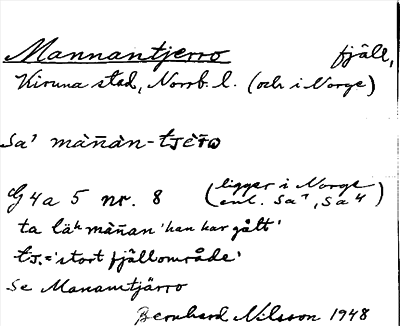 Mannantjerro fjäll,
Kiruna stad, Norrb. l. (och i Norge)
Sa⁷ màñàn-tjèr̄o
G4a 5 nr. 8 (ligger i Norge
enl. Sa⁷, Sa⁴)
ta läʰ màñan 'han har gått'
tj. = 'stort fjällområde'
Se Manamtjärro
Bernhard Nilsson 1948